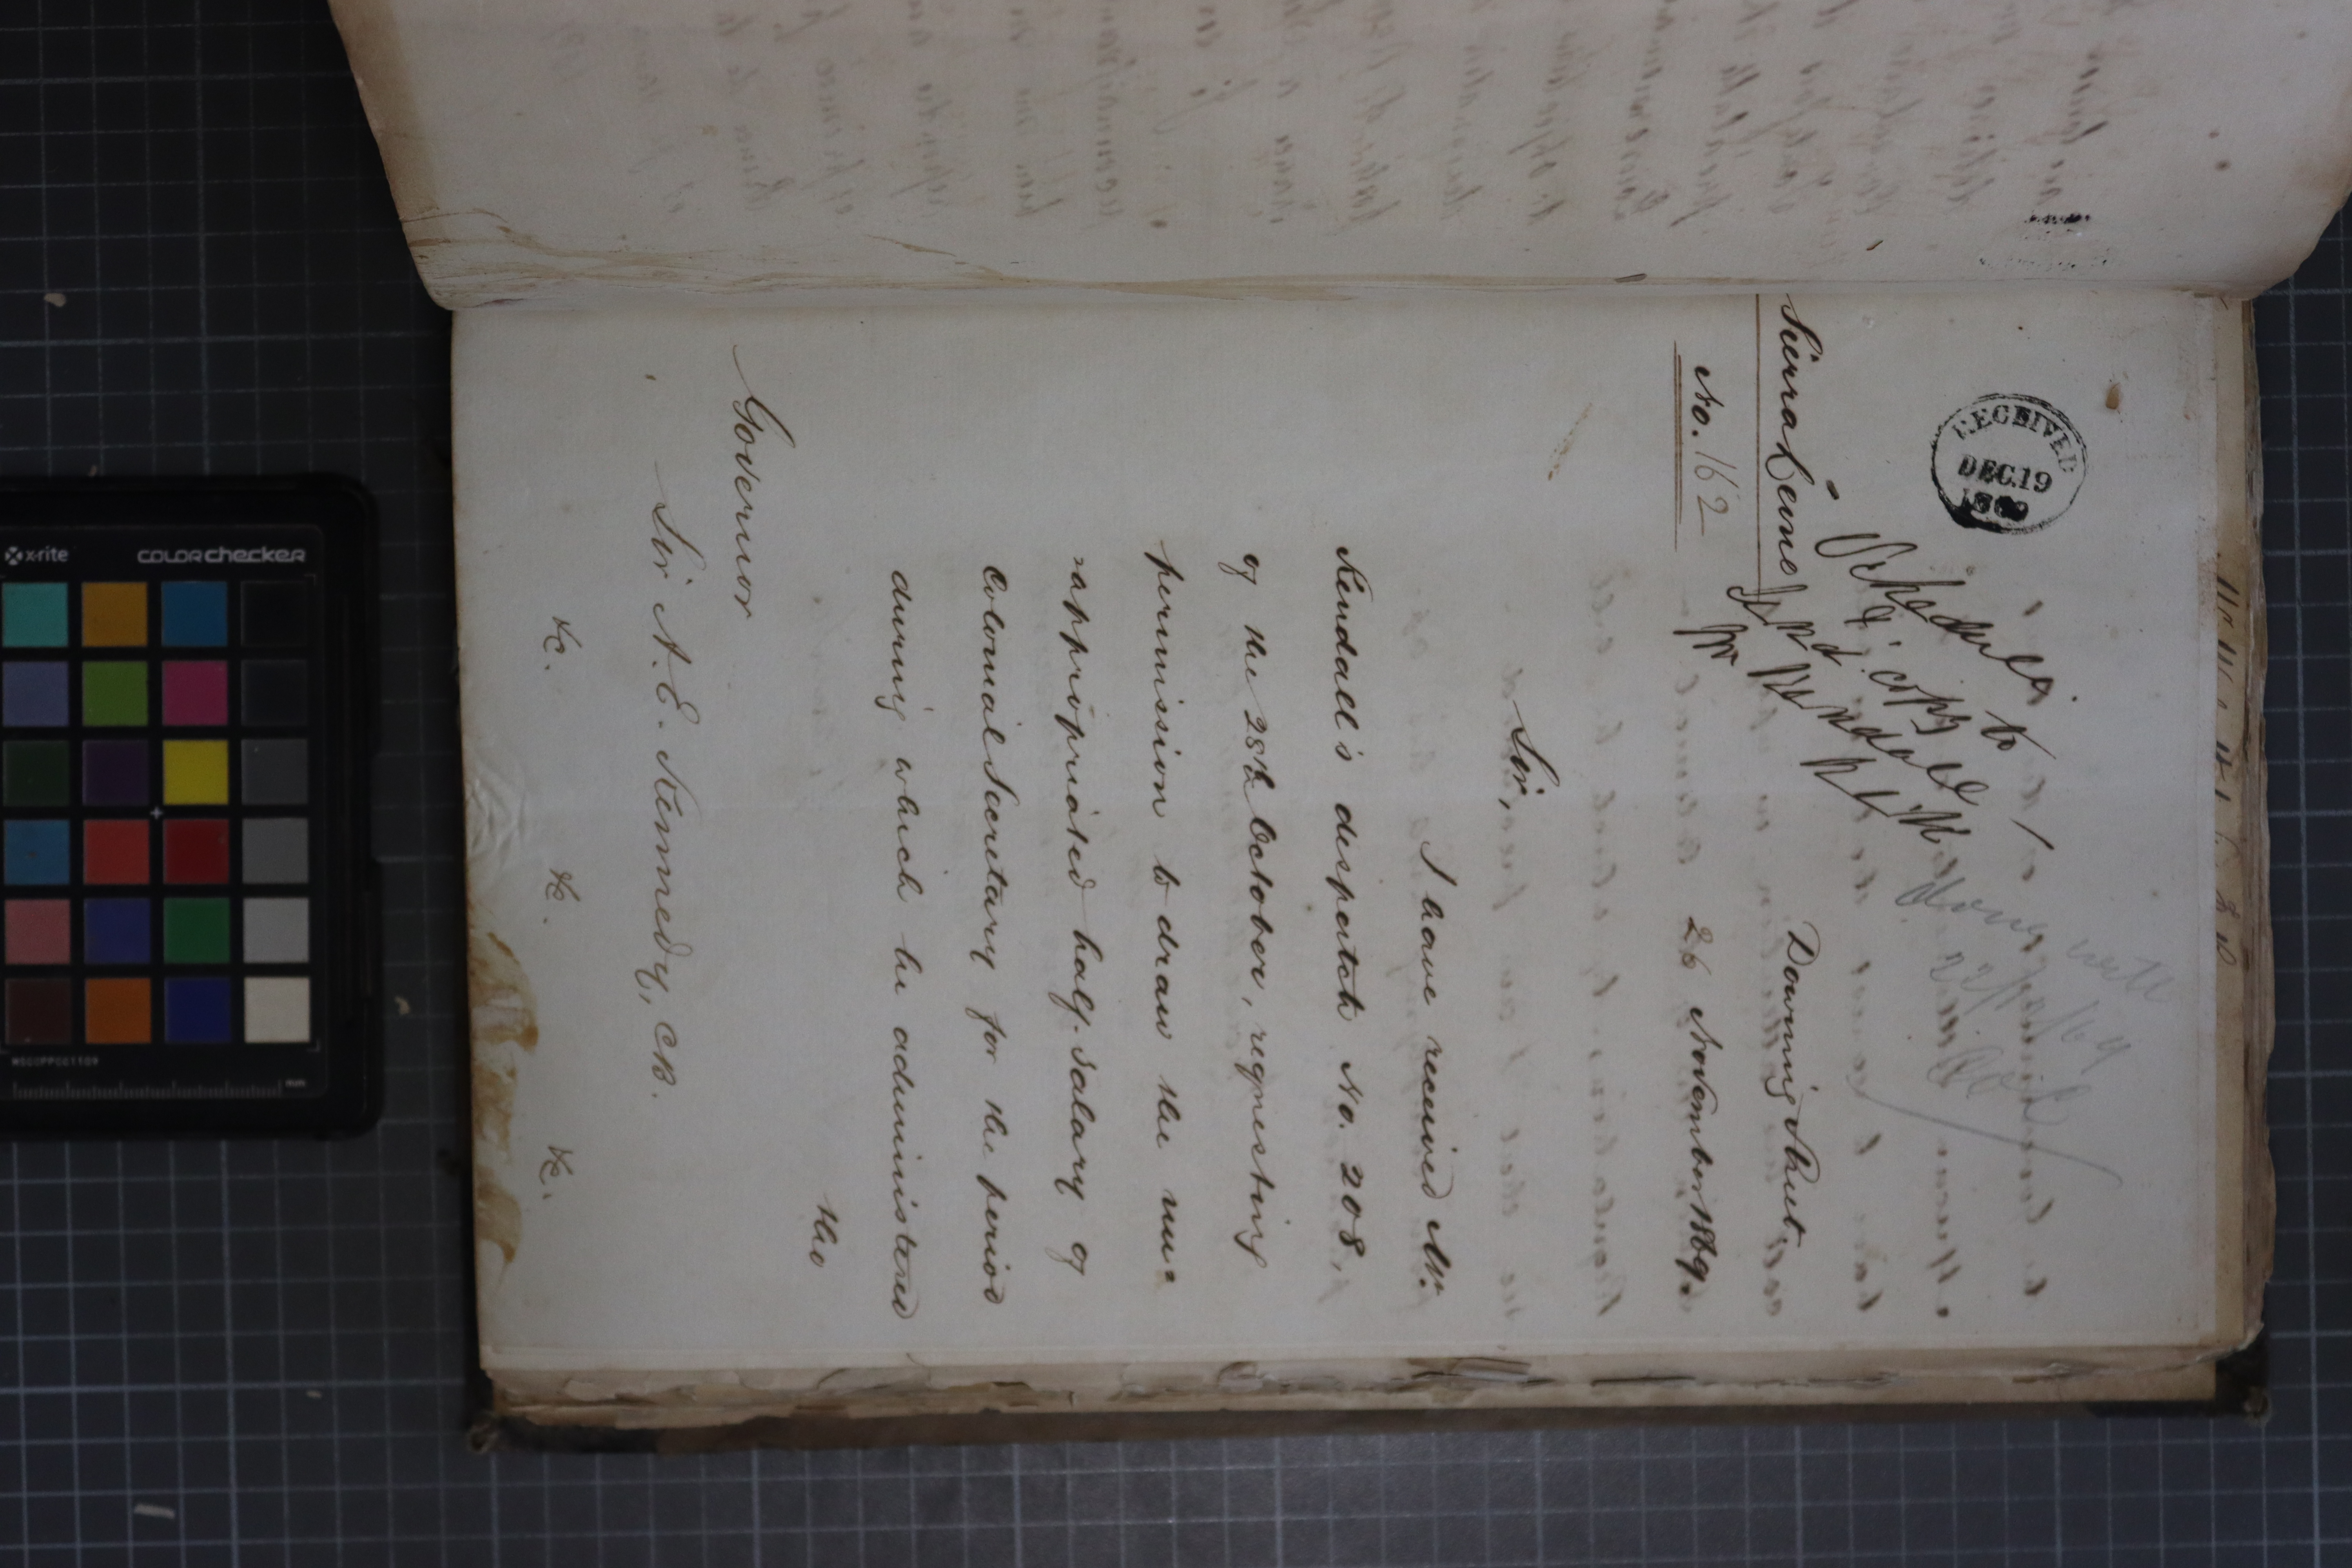 RECEIVED
DEC. 19
1869
Schedule
& copy to
Mr Kendall
Sierra Leone
No. 162
Downing Street,
26 November 1869.
Sir,
I have received Mr.
Kendall's despatch No. 208,
of the 28th October, requesting
permission to draw the un=
=appropriated half-salary of
Colonial Secretary for the period
during which he administered
the
Governor
Sir A. E. Kennedy, CB.
&c. &c. &c.
x-rite
colorchecker
mm